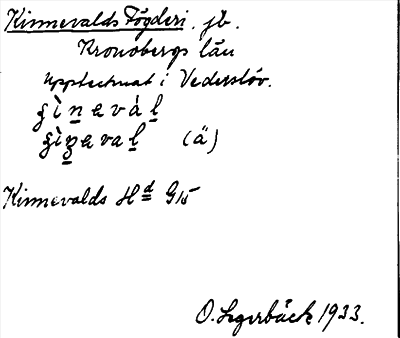 Kinnevalds Fögderi. jb.
Kronobergs län
Upptecknat i Vederslöv.
(ä)
Kinnevalds Hd G 15
O. Lagerbäck 1933.